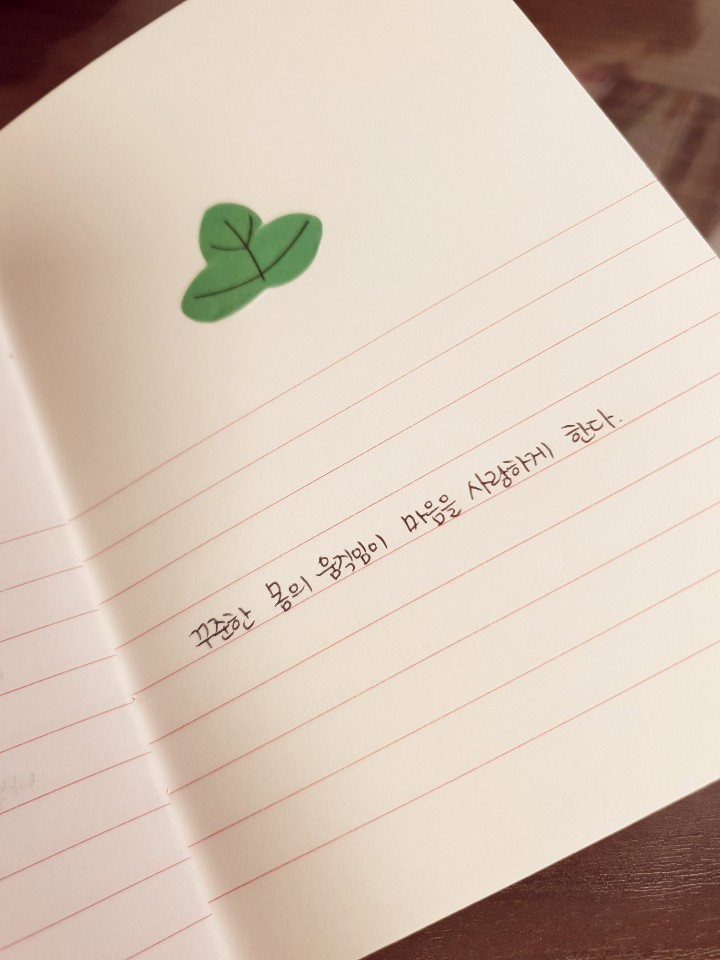 꾸준한 몸의 움직임이 마음을 사랑하게 한다.